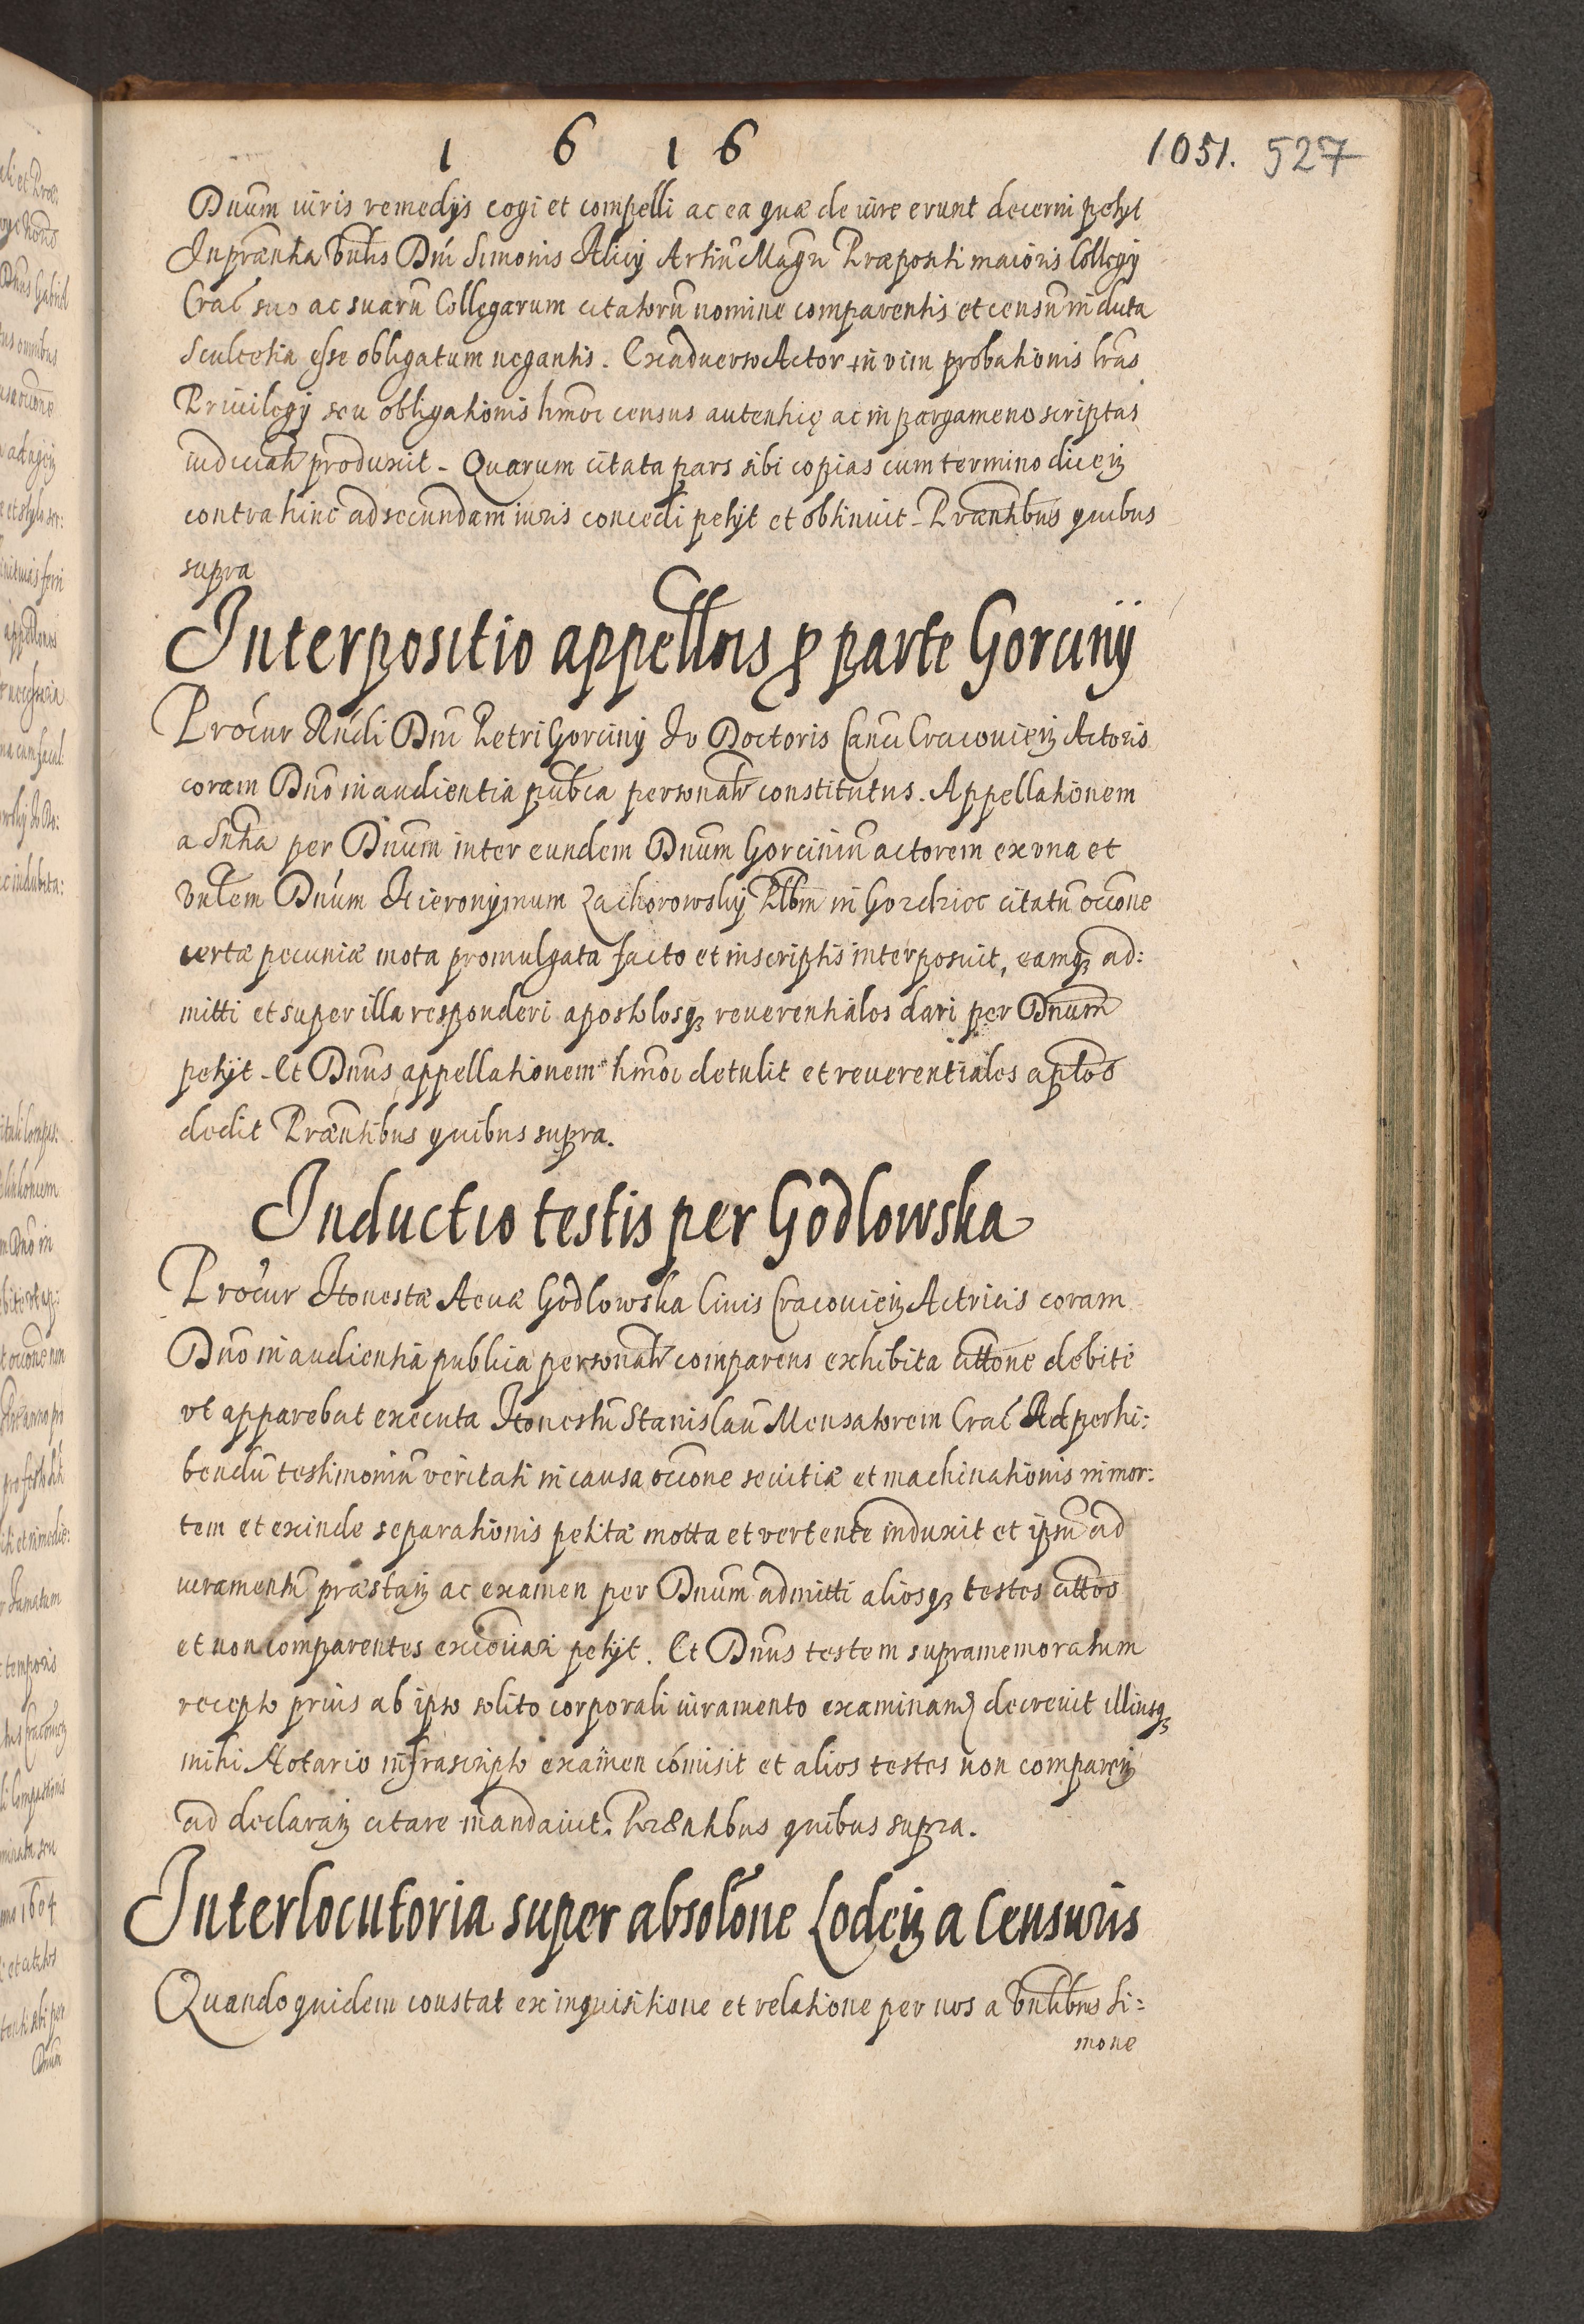 1 6 1 6
1051. 527
Dnum iuris remedijs cogi et compelli ac ea quæ de iure erunt decerni petyt
In præntia Vnblis Dni Simonis Alicij Artiu Magri Præpositi maioris Collegij
Crac suo ac suaru Collegarum citatoru nomine comparentis et censu in dicta
Scultetia esse obligatum negantis. Exaduerso Actor in vim probationis lras
Priuilegij seu obligationis hmoi census autentice ac in pargameno scriptas
iudicialr produxit. Quarum citata pars sibi copias cum termino dicen
contra hinc ad secundam iuris concedi petyt et obtinuit. Præntibus quibus
supra
Interpositio appellnis p parte Gorcinij
Procur Rndi Dni Petri Gorcinij Iv Doctoris Canci Cracouien Actoris
coram Dno in audientia publca personalr constitutus. Appellationem
a Sntia per Dnum inter eundem Dnum Gorciniu actorem ex vna et
Vnblem Dnum Hieronymum Zachorowskij Plbm in Gorchior citatu occone
certæ pecuniæ mota promulgata facto et in scriptis interposuit, eamq ad:
mitti et super illa responderi apostolosq reuerentiales dari per Dnum
petyt. Et Dnus appellationem hmoi detulit et reuerentiales aplos
dedit Præntibus quibus supra.
Inductio testis per Godlowska
Procur Honestæ Aeuæ Godlowska Ciuis Cracouien Actricis coram
Dno in audientia publica personalr comparens exhibita cittone debite
vt apparebat executa Honestu Stanislau Mensatorem Crac Ad perhi:
bendu testimoniu veritati in causa occone seuitiæ et machinationis in mor:
tem et exinde separationis petitæ motta et vertente induxit et ipsu ad
iuramentu præstan ac examen per Dnum admitti aliosq testes cittos
et non comparentes excoicari petyt. Et Dnus testem supramemoratum
recepto prius ab ipso solito corporali iuramento examinand decreuit illiusq
mihi Notario infrascripto examen comisit et alios testes non comparen
ad declaran citare mandauit. Præntibus quibus supra.
Interlocutoria super absolone Lodein a Censuris
Quandoquidem constat ex inquisitione et relatione per nos a Vnblibus Si:
mone